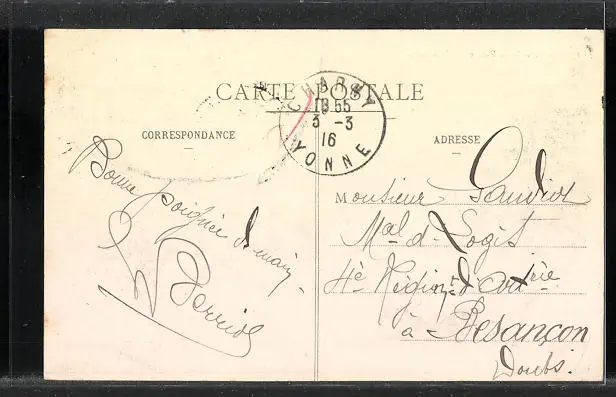 CARTE POSTALE
CHARNY
18 55
3 -3
16
YONNE
CORRESPONDANCE
ADRESSE
Bonne poignée de main
Monsieur Gaudiot
Mal d. Logis
4e Régimt d'Artrie
à Besançon
Doubs.